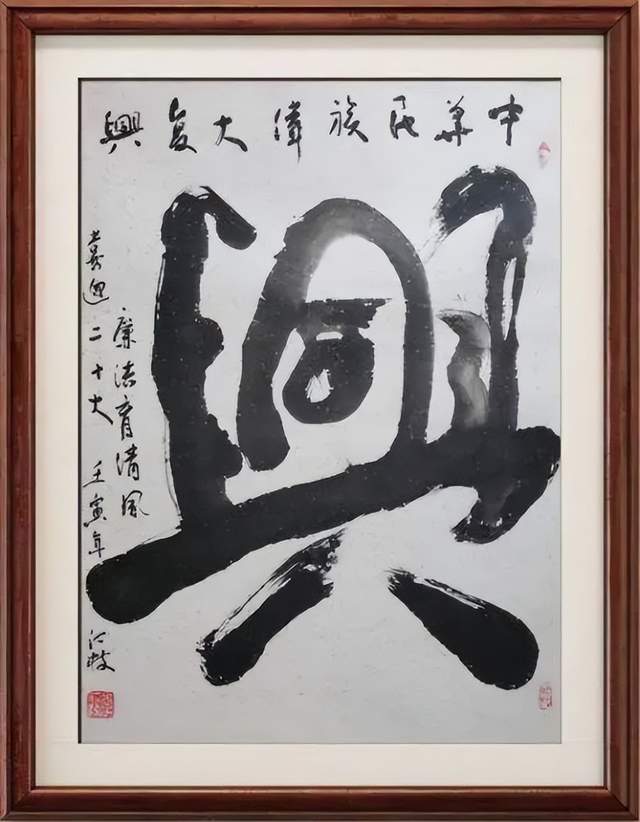 中華民族偉大复興
興
廉洁育清風
喜迎二十大 壬寅年